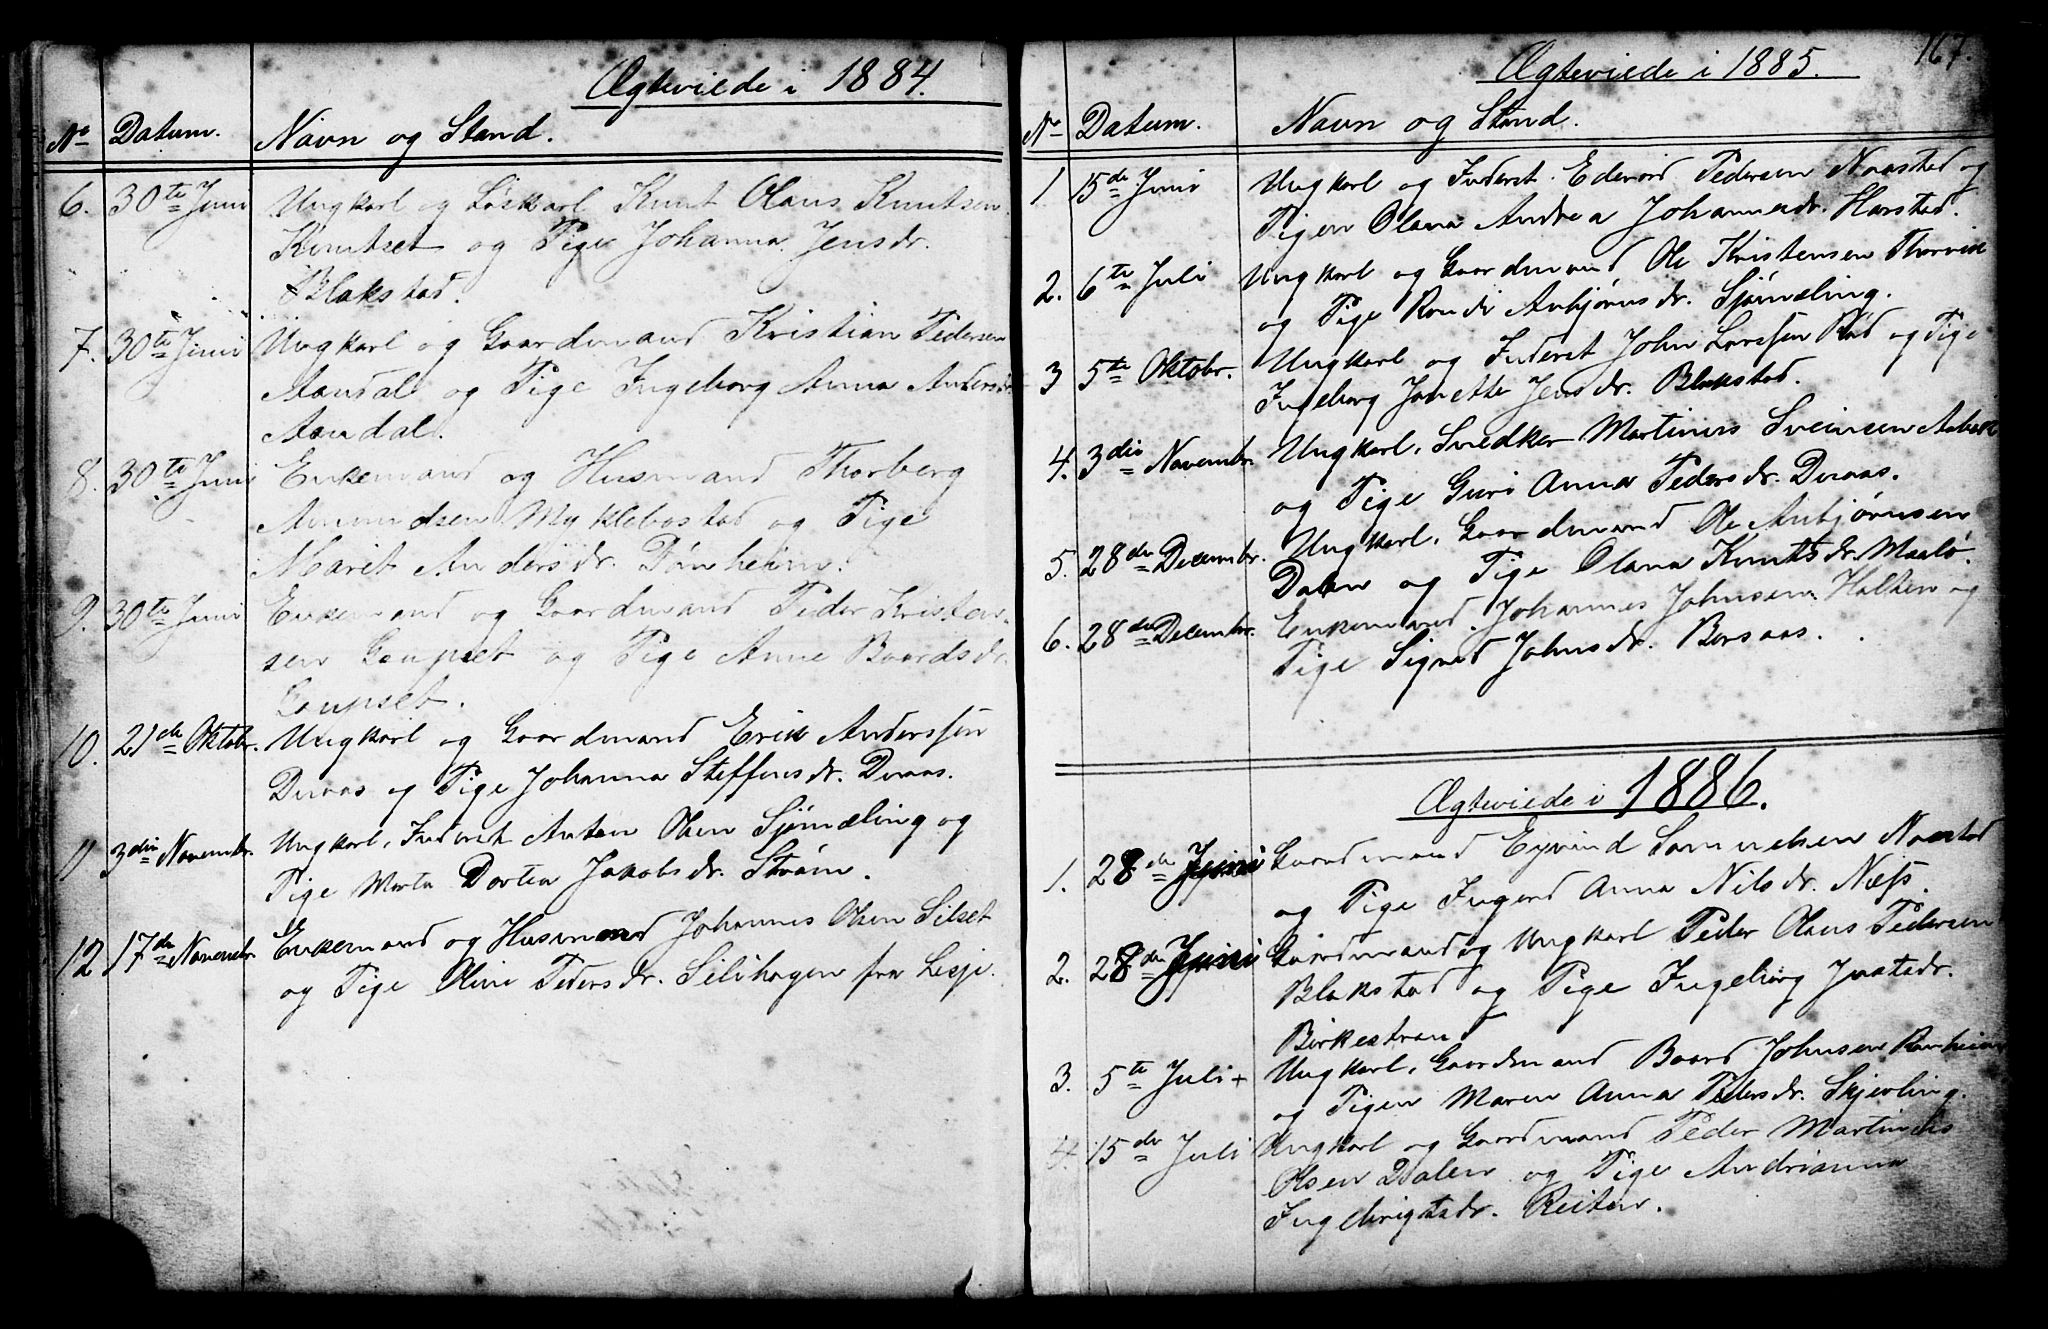 Ægteviede i 1884.
No Datum. Navn og Stand.
6. 30te Juni Ungkarl og Løskarl Knut Olaus Knutsen
og Pige Johanna Jensdr.
Blakstad.
7. 30te Juni Ungkarl og Gaardmand Kristian Pedersen
Aandal og Pige Ingeborg Anna Andersdr.
Aandal.
8. 30te Juni Enkemand og Husmand Thorberg
Amundsen Myklebostad og Pige
Marit Andersdr. Tønheim.
9. 30te Juni Enkemand og Gaardmand Peder Kristen-
sen Goupset og Pige Anne Baardsdr.
Goupset.
10. 21de Oktobr. Ungkarl og Gaardmand Erik Anderssen
Devaas og Pige Johanna Steffensdr. Devaas.
11 3die Novembr. Ungkarl, Inderst Anton Olsen Sjømæling og
Pige Marta Dortea Jakobsdr. Strøm.
12 17de Novembr. Enkemand og Husmand Johannes Olsen Silset
og Pige Oline Pedersdr. Silihagen fra Lesje.
167.
Ægteviede i 1885.
No Datum. Navn og Stand.
1. 15de Juni Ungkarl og Inderst Edevard Pedersen Naastad og
Pigen Olava Andrea Johannesdr. Harstad.
2. 6te Juli Ungkarl og Gaardmand Ole Kristensen Thorvik
og Pige Randi Anbjørnsdr. Sjømæling.
3 5te Oktobr. Ungkarl og Inderst John Larssen Rød og Pige
Ingeborg Janette Jensdr. Blakstad.
4. 3die Novembr. Ungkarl, Snedker Martinus Sveinsen Aasbak
og Pige Guri Anna Pedersdr. Devaas.
5. 28de Decembr. Ungkarl, Gaardmand Ole Anbjørnsen
Dalen og Pige Olava Knutsdr. Maalø.
6. 28de Decembr. Enkemand Johannes Johnsen Halsen og
Pige Sigrid Johnsdr. Borsaas.
Ægteviede i 1886.
1. 28de Juni Gaardmand Eyvind Samuelsen Naastad
og Pige Ingerd Anna Nilsdr. Næss.
2. 28de Juni Gaardmand og Ungkarl Peder Olaus Pedersen
Blakstad og Pige Ingeborg Joatsdr.
Birkestrand
3. 5te Juli + Ungkarl, Gaardmand Baard Johnsen Ranheim
og Pigen Maren Anna Pedersdr. Skjevling.
4. 15de Juli Ungkarl og Gaardmand Peder Martinus
Olsen Dalen og Pige Andrianna
Ingebrigtsdr. Reiten.